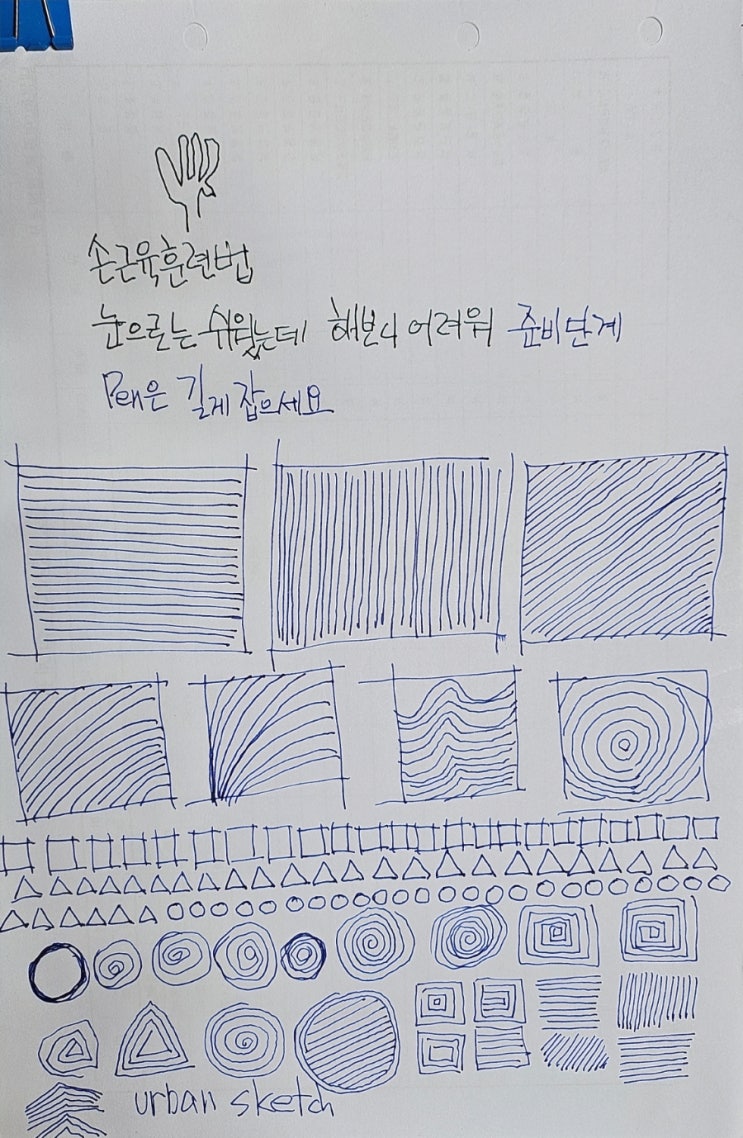 손근육훈련법
눈으로는 쉬웠는데 해보니 어려워 준비단계
Pen은 길게 잡으세요
urban sketch